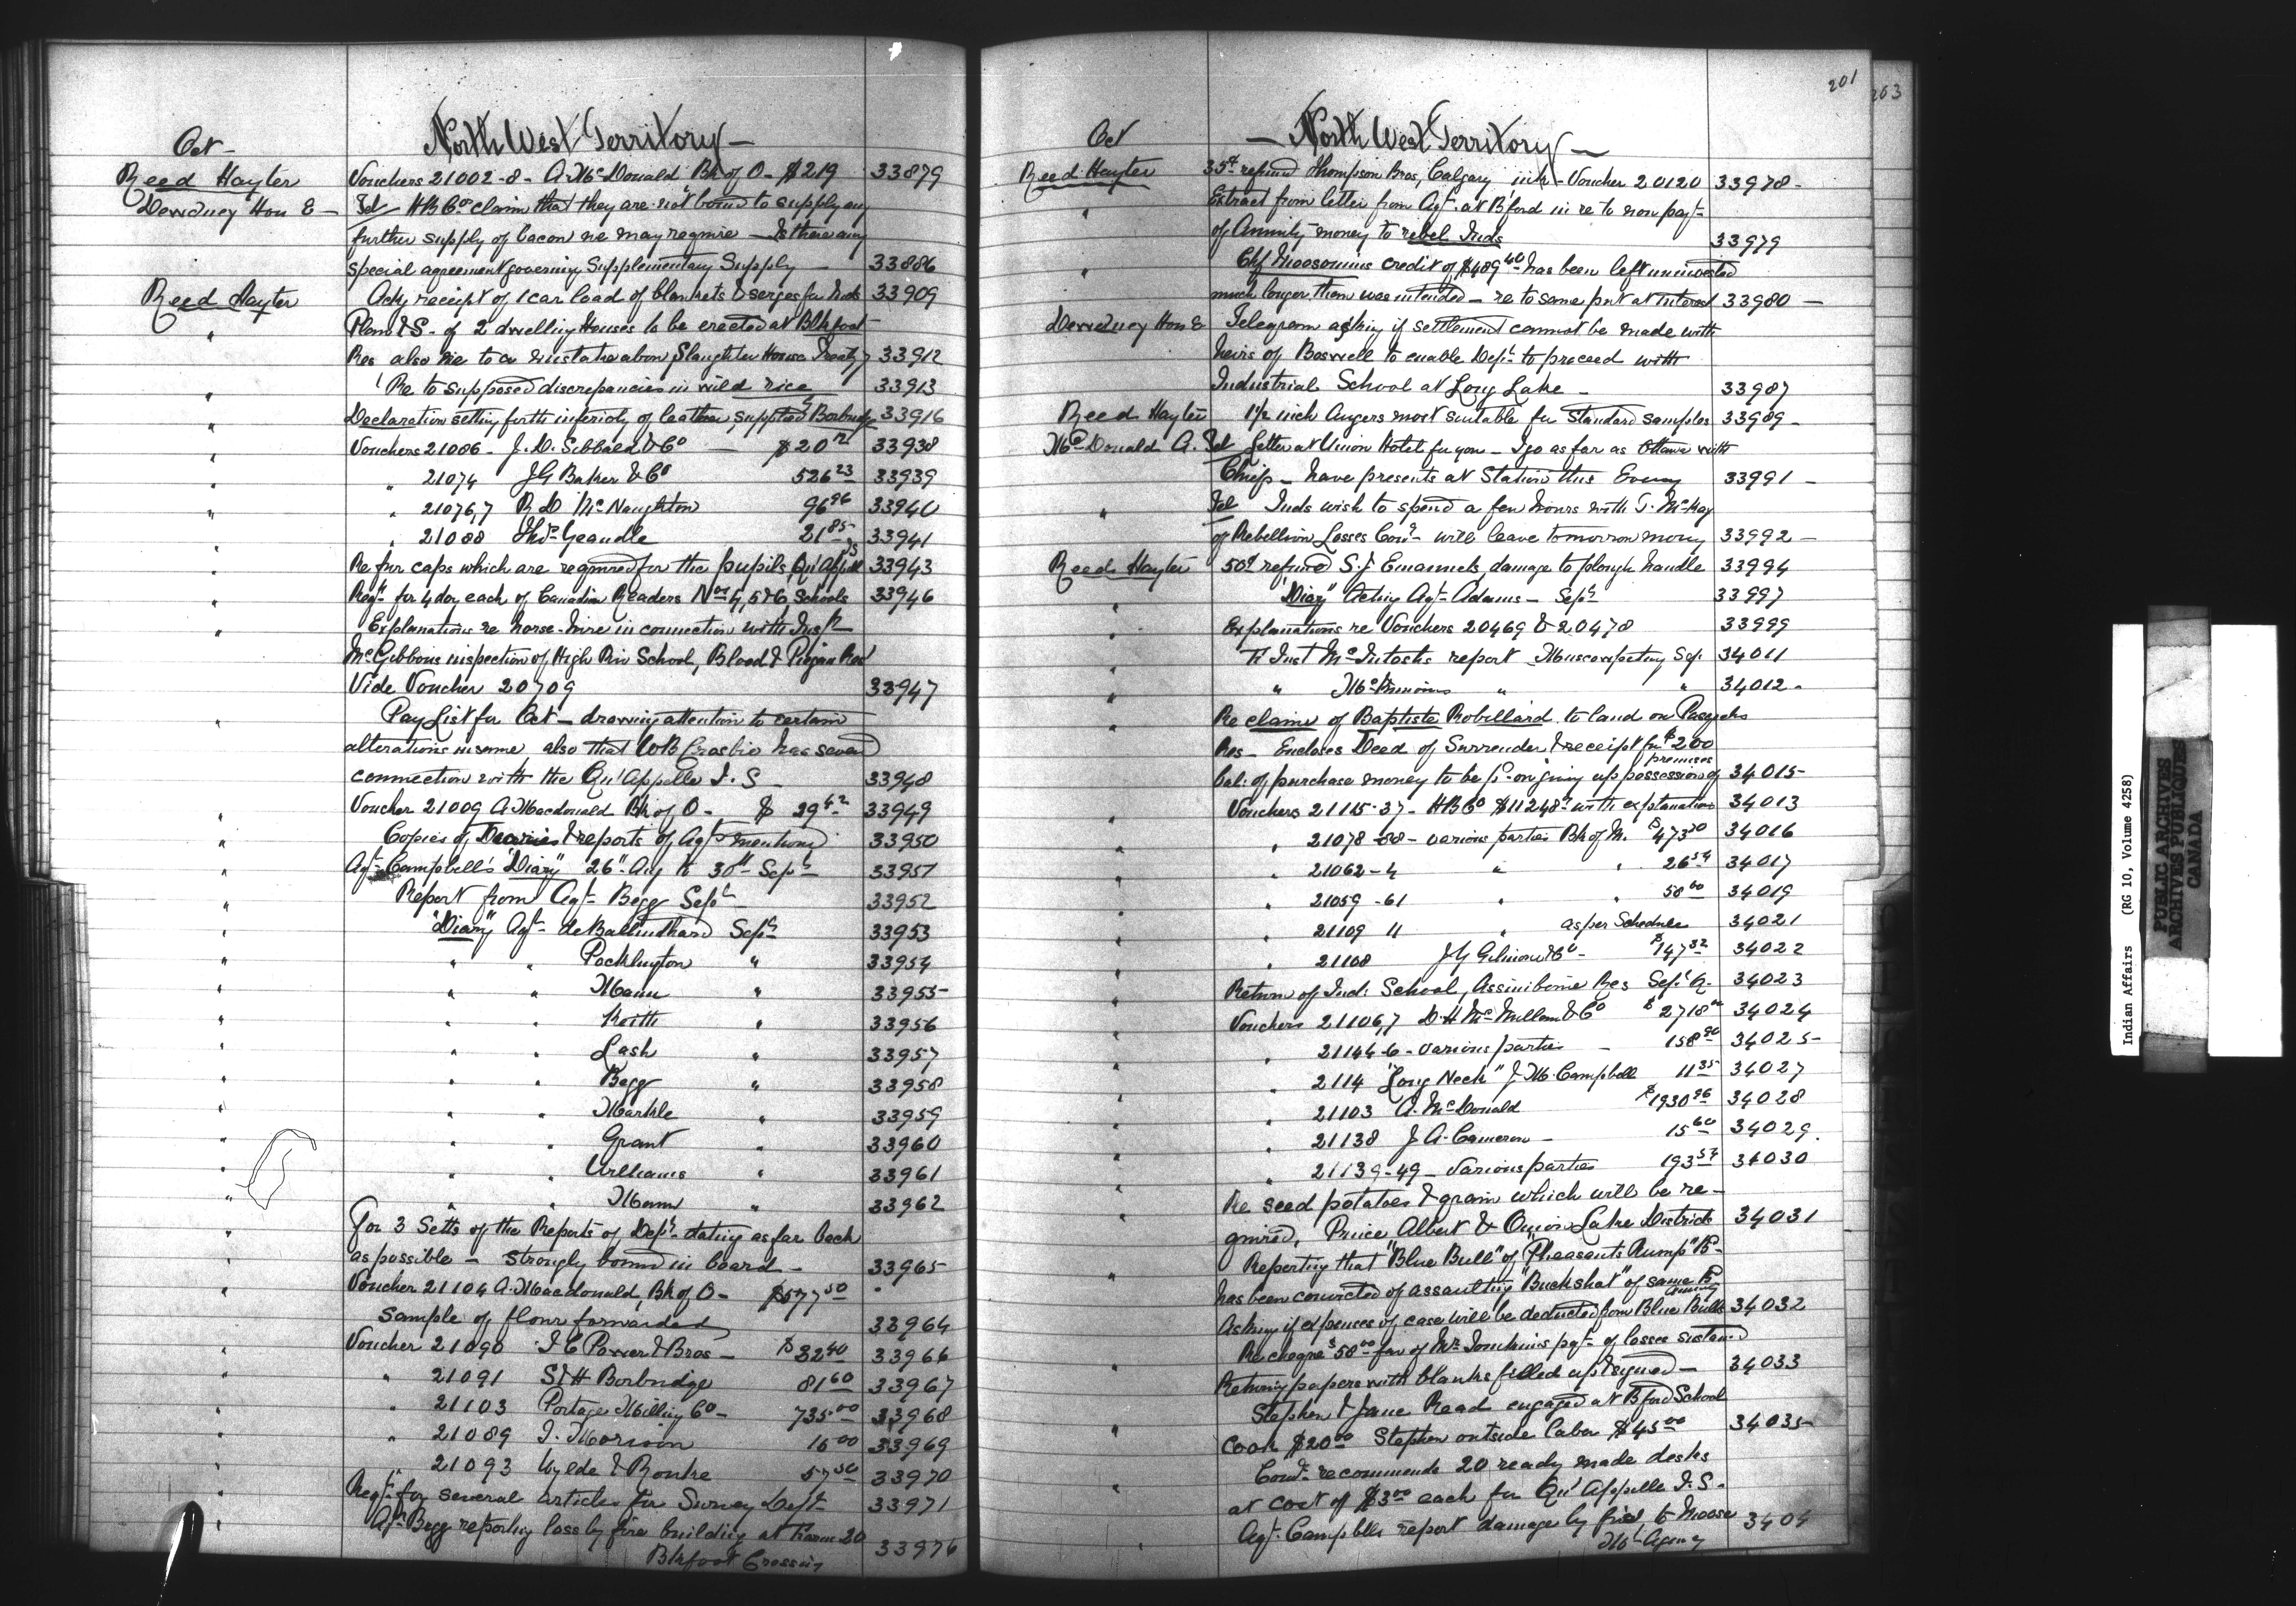 Oct -
North West Territory -
Reed Hayter Vouchers 21002-8- A. McDonald Bk. of O- $219 33879
Dewdney Hon E - Tel HB Co claim that they are not bound to supply any
further supply of bacon we may require - Is there any
special agreement governing Supplementary Supply - 33886
Reed Hayter Ackg receipt of 1 car load of blankets & serges for Inds 33909
" Plan & S. of 2 dwelling Houses to be erected at Blkfoot
Res also re to a mistake about Slaughter House Treaty 7 33912
" Re to supposed discrepancies in wild rice 33913
" Declaration setting forth inferiority of leather supplied by Borbridge 33916
" Vouchers 21086 - J. D. Sibbald & Co - $20 33938
" " 21074 J G Baker & Co 526 23 33939
" " 21076,7 R D McNaughton 96 96 33940
" " 21088 Geandle 21 85 33941
" Re fur caps which are required for the pupils, Qu'Appelle IS 33943
" Reqn for 4 doz each of Canadian Readers Nos 4, 5 & 6 Schools 33946
" Explanations re horse-hire in connection with Inspr
McGibbons inspection of High Riv School, Blood & Piegan Res
Vide Voucher 20709 33947
" Pay List for Oct - drawing attention to certain
alterations in same also that WB Crosbie has severed
connection with the Qu'Appelle I. S - 33948
" Voucher 21009 A. Macdonald Bk of O- $ 29 42 33949
" Copies of Diaries & reports of Agts mentioned 33950
" Agt Campbell's "Diary" 26" Aug to 30" Sept 33951
" Report from Agt Begg Sept - 33952
" "Diary" Agt de Balinhard Sept 33953
" " " Pocklington " 33954
" " " Mann " 33955
" " " Keith " 33956
" " " Lash " 33957
" " " Begg " 33958
" " " Markle " 33959
" " " Grant " 33960
" " " Williams " 33961
" " " Mann " 33962
" For 3 Setts of the Reports of Dept dating as far back
as possible - strongly bound in board - 33965
" Voucher 21104 A. Macdonald, Bk of O- $577 50
Sample of flour forwarded 33964
" Voucher 21090 I C Power & Bros - $32 40 33966
" " 21091 S & H Borbridge 81 60 33967
" " 21103 Portage Milling Co - 735 00 33968
" " 21089 J. Morison 16 00 33969
" " 21093 Wylde & Rourke 57 50 33970
" Reqn for several articles for Survey Dept 33971
" Agt Begg reporting loss by fire building at Farm 20
Blkfoot Crossing 33976
201
203
Oct
- North West Territory -
Reed Hayter 35¢ refund Thompson Bros, Calgary Voucher 20120 33978 -
" Extract from letter from Agt. at Bford in re to non payt
of Annuity money to rebel Inds 33979
" Chf Moosomins credit of $489 40 has been left uninvested
much longer than was intended - re to same put at interest 33980 -
Dewdney Hon E Telegram asking if settlement cannot be made with
heirs of Boswell to enable Dept to proceed with
Industrial School at Long Lake - 33987
Reed Hayter 1½ inch Augers most suitable for standard samples 33989 -
McDonald A. Tel Letter at Union Hotel for you - I go as far as Ottawa with
Chiefs - have presents at Station this Eveng 33991 -
" Tel Inds wish to spend a few hours with J. McKay
of Rebellion Losses Comn will leave tomorrow morng 33992 -
Reed Hayter 50¢ refund S. J Emanuels damage to plough handle 33994
" "Diary" Acting Agt Adams - Sept 33997
" Explanations re Vouchers 20469 & 20478 33999
" Inst McIntoshs report - Muscowpetung Sep. 34011
" " " " 34012 -
" Re claim of Baptiste Robillard to land on Pasquahs
Res - Encloses Deed of Surrender & receipt for $200
Bal: of purchase money to be pd on giving up possession of premises 34015
" Vouchers 21115-37- HB Co $11248 with explanation 34013
" " 21078-88- various parties Bk of M. $473 20 34016
" " 21062-4 " " 26 54 34017
" " 21059-61 " " 58 00 34019
" " 21109 11 " as per Schedule 34021
" " 21108 J Y Gilmour & Co - $147 32 34022
" Return of Ind: School, Assiniboine Res Sept Q- 34023
" Vouchers 21106,7 D. H McMillan & Co $2718 34024
" " 21144-6 - various parties - 158 90 34025 -
" " 2114 "Long Neck" J. M. Campbell 11 35 34027
" " 21103 A. McDonald $1930 96 34028
" " 21138 J A. Cameron - 15 60 34029.
" " 21139-49 - Various parties 193 54 34030
" Re seed potatoes & grain which will be re-
quired, Prince Albert & Onion Lake Districts 34031
" Reporting that "Blue Bull" of "Pheasants Rump" Bd
has been convicted of assaulting "Buckshot" of same Bd
Asking if expenses of case will be deducted from Blue Bulls annuity 34032
" Re cheque $58 00 fav of Mr Tomkins pyt of losses sustained
Returng papers with blanks filled up & signed - 34033
" Stephen & Jane Read engaged at Bford School
Cook $20 00 Stephen outside labor $45 00 34035
" Comr recommends 20 ready made desks
at cost of $3 00 each for Qu'Appelle I. S.
" Agt. Campbells report damage by fire to Moose
Mt Agency 3404
Indian Affairs (RG 10, Volume 4258)
PUBLIC ARCHIVES
ARCHIVES PUBLIQUES
CANADA